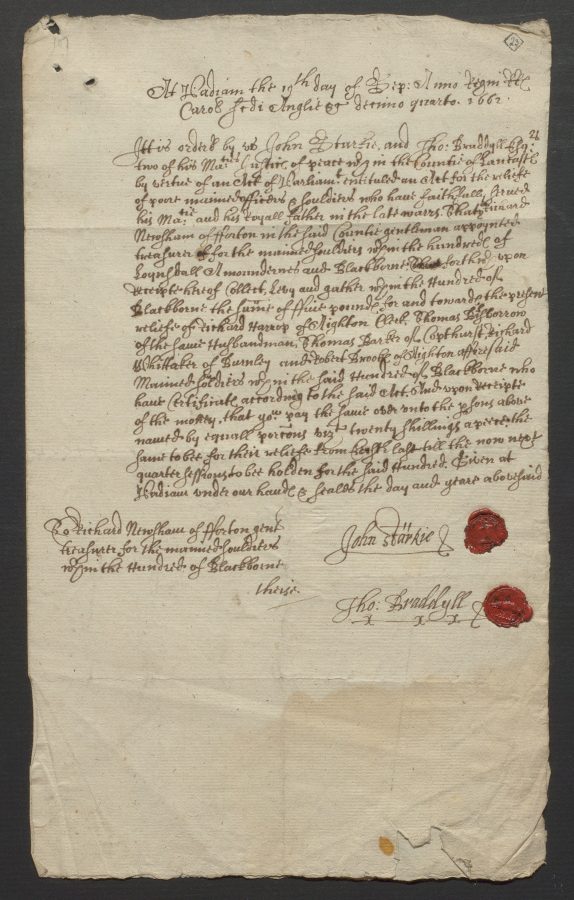 23
At Padiam the 19th day of Sep: Anno Regni R R
Caroli scdi Anglie &c decimo quarto. 1662.
Itt is orderd by us John Starkie, and Tho: Braddyll Esqrs
two of his Maties Justices of peace wthin the Countie of Lancastr
by vertue of an Act of Parliamt entituled an Act for the reliefe
of poore maimed officers & souldiers who have faithfully served
his Matie and his royall father in the late warrs. That Richard
Newsham of fforton in the said Countie gentleman appointed
treasurer for the maimed souldiers wthin the hundreds of
Loynsdall Amoundernes and Blackborne forthwth upon
receipte hereof Collect, Levy and gather wthin the Hundred of
Blackborne the sume of ffive pounds for and towards the present
reliefe of Richard Harrop of Aighton Clerk, Thomas Bisborrow
of the same Husbandman, Thomas Barker of Copthurst, Richard
Whittaker of Burnley and Robert Brooke of Aighton afforesaid
Maimed soldiers wthin the said Hundred of Blackborne who
have Certificates according to the said Act, And upon receipte
of the money, that you pay the same over unto the psons above
named by equall porcons vizt twenty shillings a peece the
same to bee for their reliefe from last till the now next
quarter sessions to bee holden for the said Hundred. Given at
Padiam under our hands & seales the day and yeare abovesaid
To Richard Newsham of fforton gent
treasurer for the maimed souldiers
wthin the Hundred of Blackborne
theise.
John Starkie
Tho: Braddyll